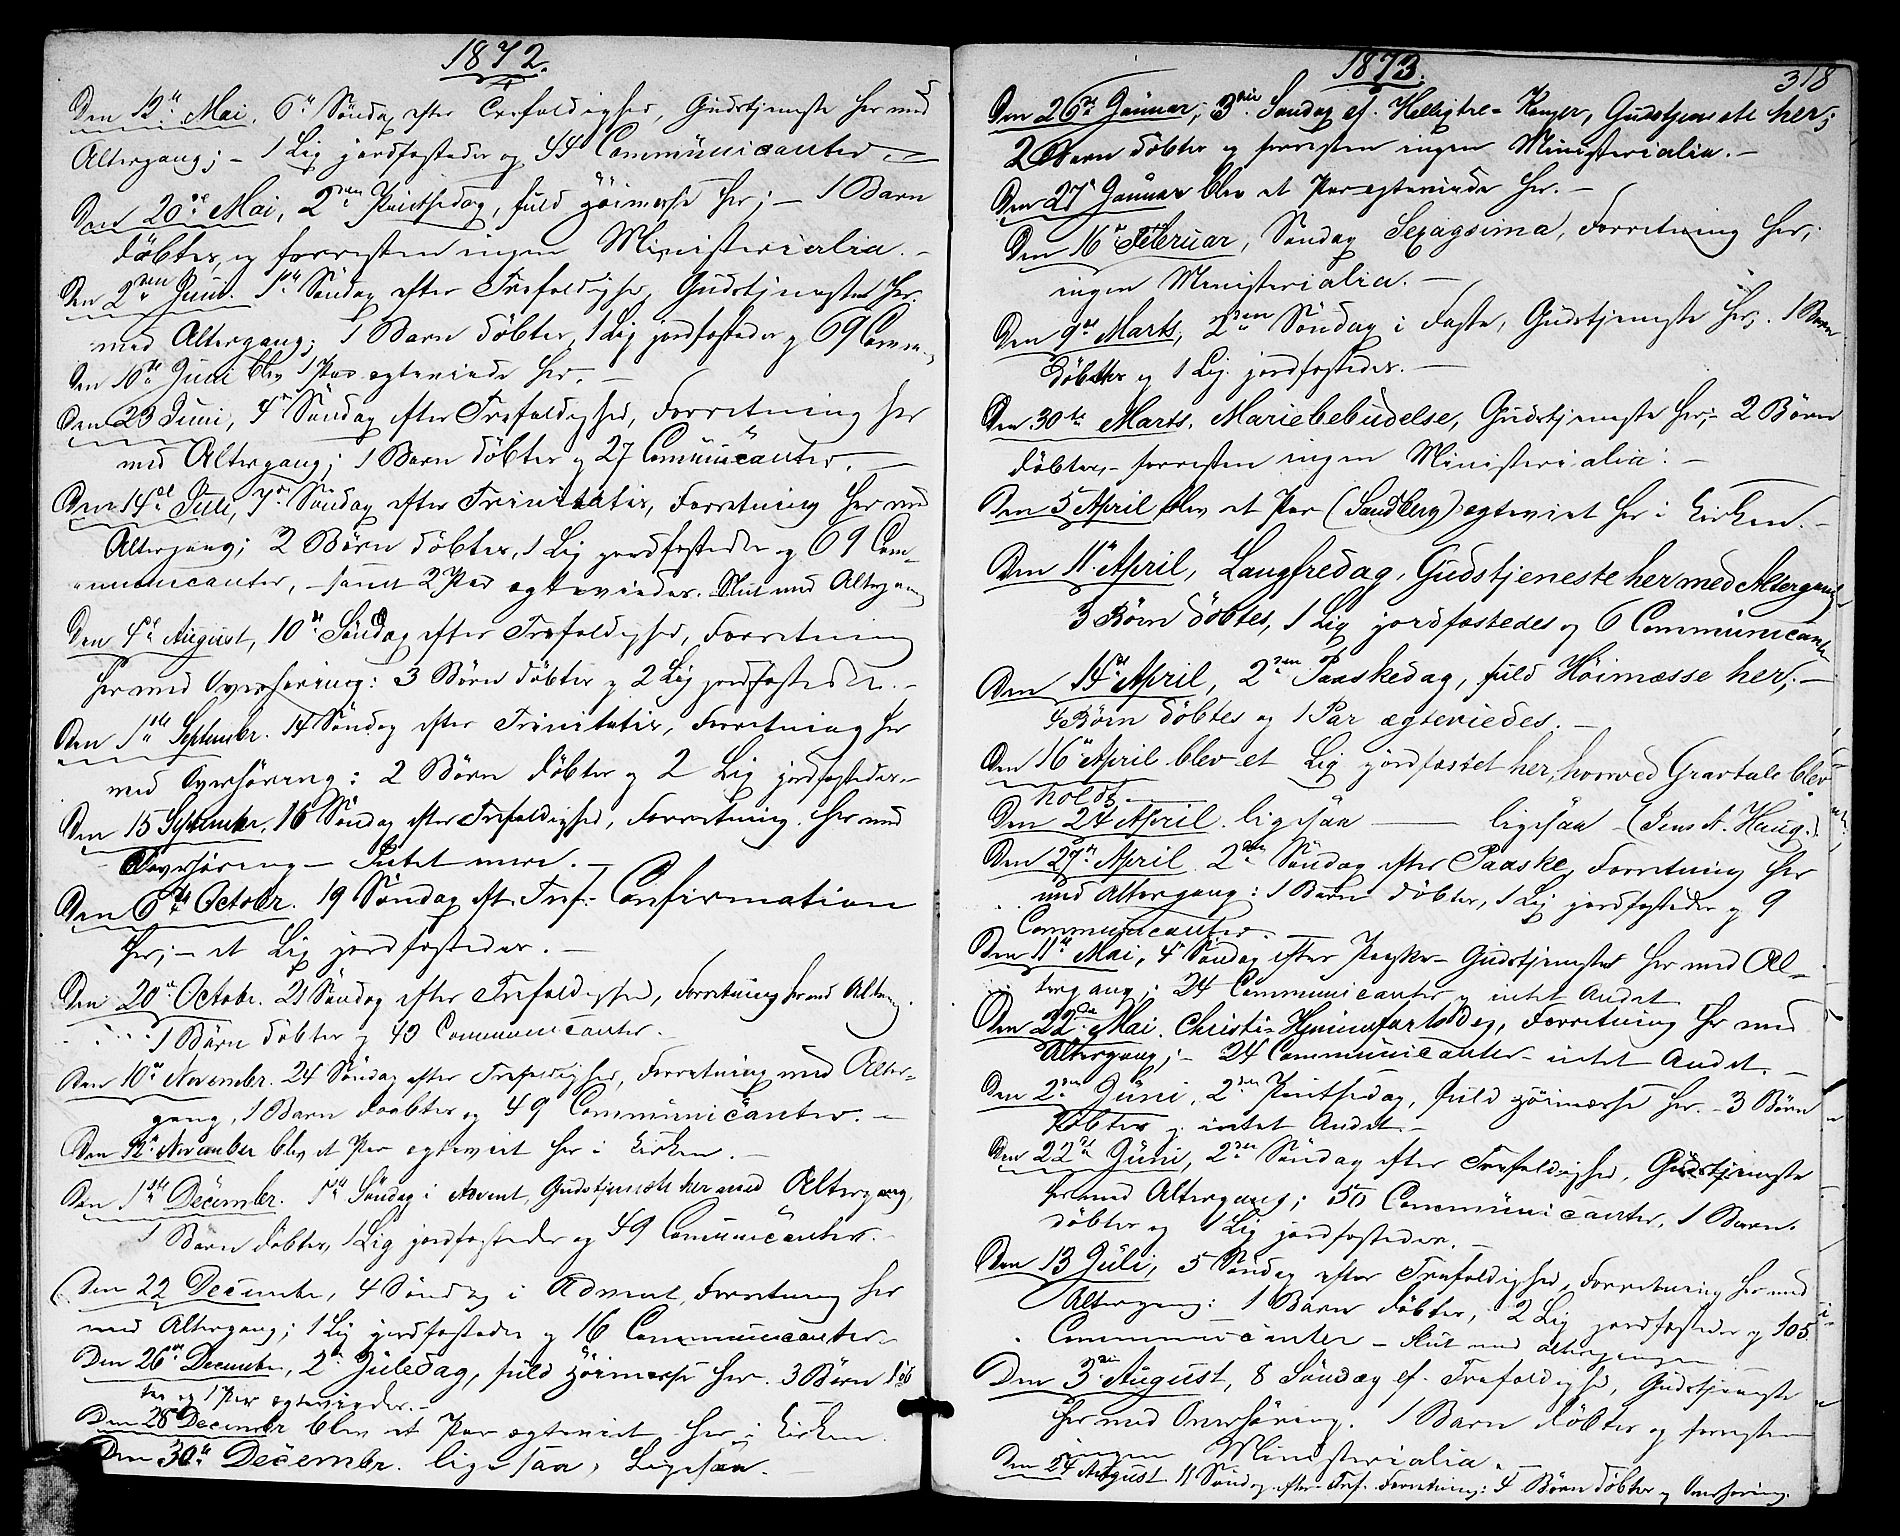 1872.
Den 12te Mai, 6te Søndag efter Trefoldighed, Gudstjeneste her med
Altergang; – 1 Lig jordfæstedes og 44 Communicanter. –
Den 20de Mai, 2den Pintsedag, fuld Höimesse her; – 1 Barn
döbtes, og forresten ingen Ministerialia. –
Den 2den Juni. 1ste Søndag efter Trefoldighed, Gudstjeneste her
med Altergang; 1 Barn döbtes, 1 Lig jordfæstedes og 69 Comm.
Den 16de Juni blev 1 Par egteviede her. –
Den 23 Juni, 4de Søndag efter Trefoldighed, Forretning her
med Altergang; 1 Barn döbtes og 27 Comünicanter. –
Den 14de Juli, 7de Søndag efter Trinitatis, Forretning her med
Altergang; 2 Börn döbtes, 1 Lig jordfæstedes og 69 Com-
municanter, – samt 2 Par egteviedes. Slut med Altergang
Den 4de August, 10de Søndag efter Trefoldighed, Forretning
her med Overhøring: 3 Börn döbtes og 2 Lig jordfæstedes. –
Den 1ste Septembr. 14 Søndag efter Trinitatis, Forretning her
med Overhöring: 2 Börn döbtes og 2 Lig jordfæstedes. –
Den 15 Septembr, 16 Søndag efter Trefoldighed, Forretning her med
Overhöring – Intet mere. –
Den 6te Octobr. 19 Søndag eft. Tref.- Confirmation
her; – et Lig jordfæstedes. –
Den 20de Octobr. 21 Søndag efter Trefoldighed, Forretning her med Alterg.
1 Barn döbtes og 43 Communicanter.
Den 10de Novembr. 24 Søndag efter Trefoldighed, Forretning med Alter-
gang, 1 Barn döbtes og 49 Communicanter. –
Den 12te November blev et Par egteviet her i Kirken. –
Den 1ste Decembr. 1ste Søndag i Advent, Gudstjeneste her med Altergang,
1 Barn döbtes, 1 Lig jordfæstedes og 49 Comunicanter. –
Den 22 Decembr, 4 Søndag i Advent, Forretning her
med Altergang; 1 Lig jordfæstedes og 16 Communicanter. –
Den 26de Decembr, 2den Juledag, fuld Höimesse her. 3 Börn döb-
tes og 1 Par egteviedes. –
Den 28 Decembr blev et Par egteviet her i Kirken
Den 30te Decembr. ligesaa, Ligesaa. –
1873.
318
Den 26de Januar, 3die Søndag ef. Helligtre-Konger, Gudstjeneste her;
2 Børn döbtes og forresten ingen Ministerialia. –
Den 27de Januar blev et Par egteviede her. –
Den 16de Februar, Søndag Sexagsima, Forretning her,
ingen Ministerialia. –
Den 9de Marts, 2den Søndag i Faste, Gudstjeneste her; 1 Barn
döbtes og 1 Lig jordfæstedes. –
Den 30te Marts. Mariebebudelse, Gudstjeneste her; 2 Börn
döbtes, – forresten ingen Ministerialia. –
Den 5 April blev et Par (Sandberg) egteviet her i Kirken. –
Den 11te April, Langfredag, Gudstjeneste her med Altergang
3 Börn döbtes, 1 Lig jordfæstedes og 6 Communicanter
Den 14de April, 2den Paaskedag, fuld Höimæsse her; –
4 Börn döbtes og 1 Par ægteviedes. –
Den 16de April blev et Lig jordfæstet her, hvorved Gravtale blev
holdt. –
Den 24 April. ligesaa – ligesaa – (Jens A. Haug.)
Den 27de April 2den Søndag efter Paaske, Forretning her
med Altergang: 1 Barn döbtes, 1 Lig jordfæstedes og 9
Communicanter. –
Den 11te Mai, 4de Søndag efter Paaske – Gudstjeneste her med Al-
tergang; 24 Communicanter og intet Andet
Den 22de Mai. Christi Himmelfartsdag, Forretning her med
Altergang; – 24 Communicanter – intet Andet. –
Den 2den Juni, 2den Pintsedag, fuld Höimesse her. – 3 Börn
döbtes og intet Andet. –
Den 22de Juni, 2den Søndag efter Trefoldighed, Gudstjeneste
her med Altergang; 50 Commünicanter, 1 Barn
döbtes og 1 Lig jordfæstedes. –
Den 13 Juli, 5 Søndag efter Trefoldighed, Forretning her med
Altergang: 1 Barn döbtes, 2 Lig jordfæstedes og 105
Communicanter – Slut med altergangen
Den 3die August, 8 Søndag ef. Trefoldighed, Gudstjeneste
her med Overhöring. 1 Barn döbtes og forresten
ingen Ministerialia. –
Den 24 August 11 Søndag efter Tref. Forretning: 4 Börn döbtes og Overhöring.